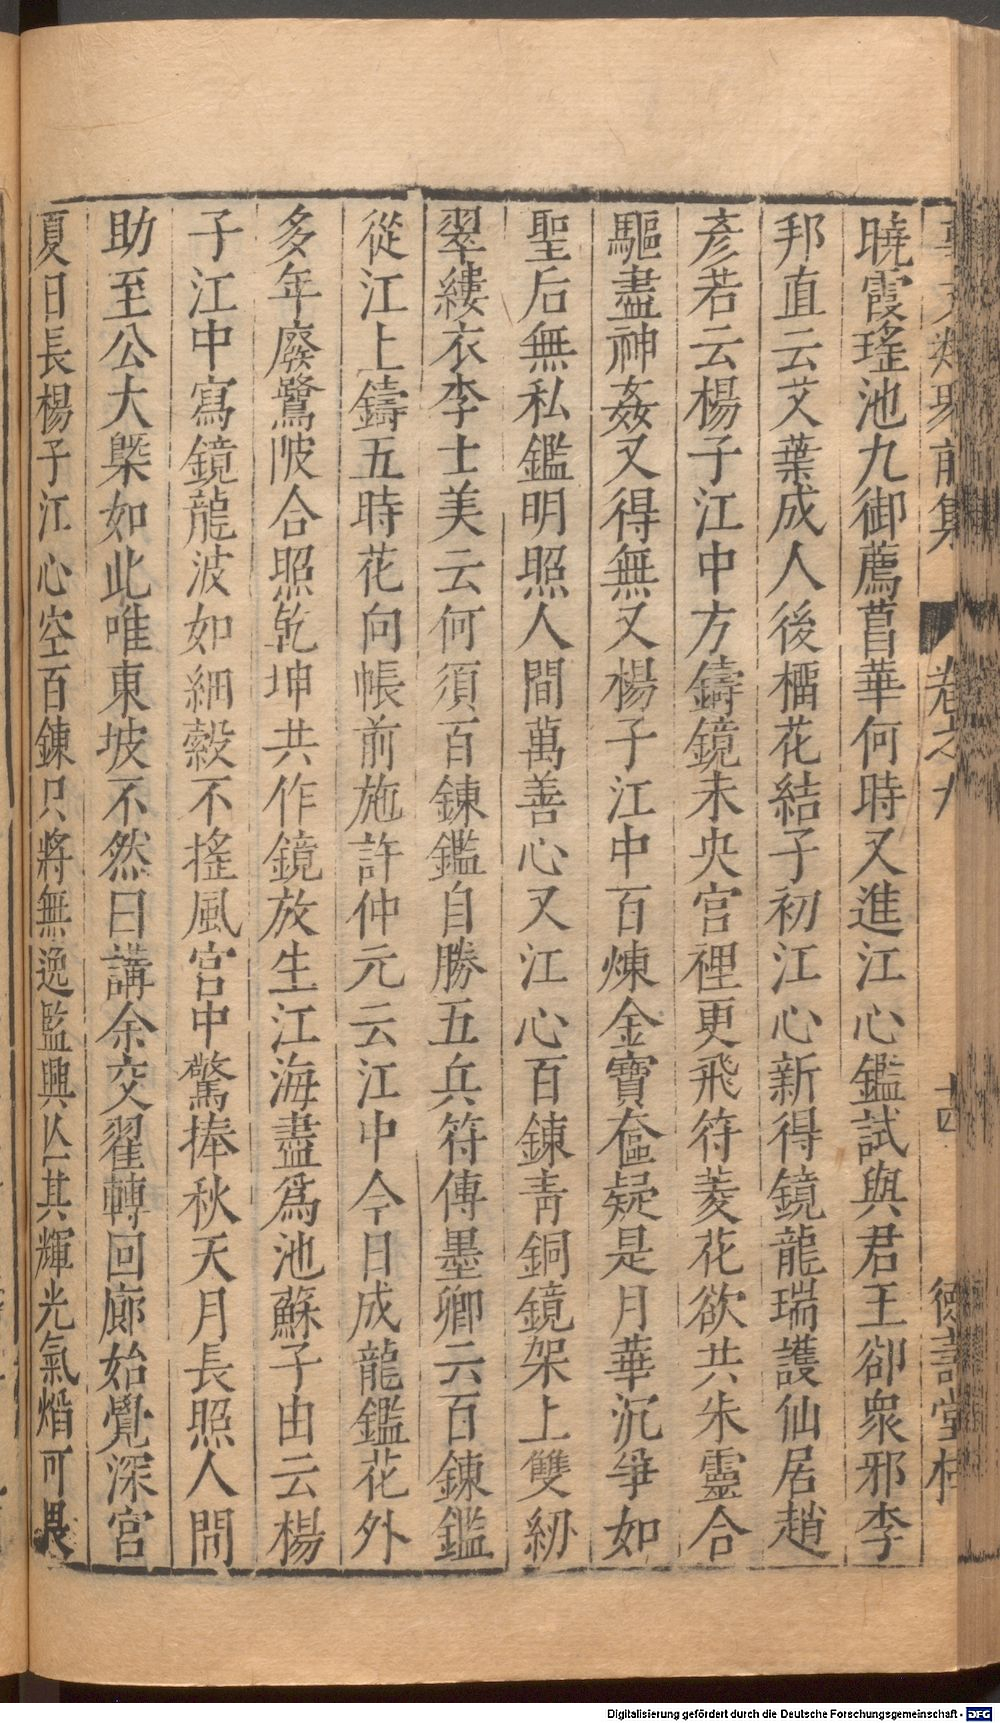 事文類聚前集 卷之九 十四 德壽堂梓
曉霞瑤池九御薦菖華何時又進江心鑑試與君王卻衆邪李
邦直云艾葉成人後榴花結子初江心新得鏡龍瑞護仙居趙
彥若云楊子江中方鑄鏡未央宮裡更飛符菱花欲共朱靈合
驅盡神姦又得無又楊子江中百煉金寶奩疑是月華沉爭如
聖后無私鑑明照人間萬善心又江心百鍊青銅鏡架上雙紉
翠縷衣李士美云何須百鍊鑑自勝五兵符傳墨卿云百鍊鑑
從江上鑄五時花向帳前施許仲元云江中今日成龍鑑花外
多年廢鷺陂合照乾坤共作鏡放生江海盡爲池蘇子由云楊
子江中寫鏡龍波如細縠不搖風宮中驚捧秋天月長照人間
助至公大槩如此唯東坡不然曰講余交翟轉回廊始覺深宮
夏日長楊子江心空百鍊只將無逸監興亾其輝光氣熖可畏
Digitalisierung gefördert durch die Deutsche Forschungsgemeinschaft - DFG